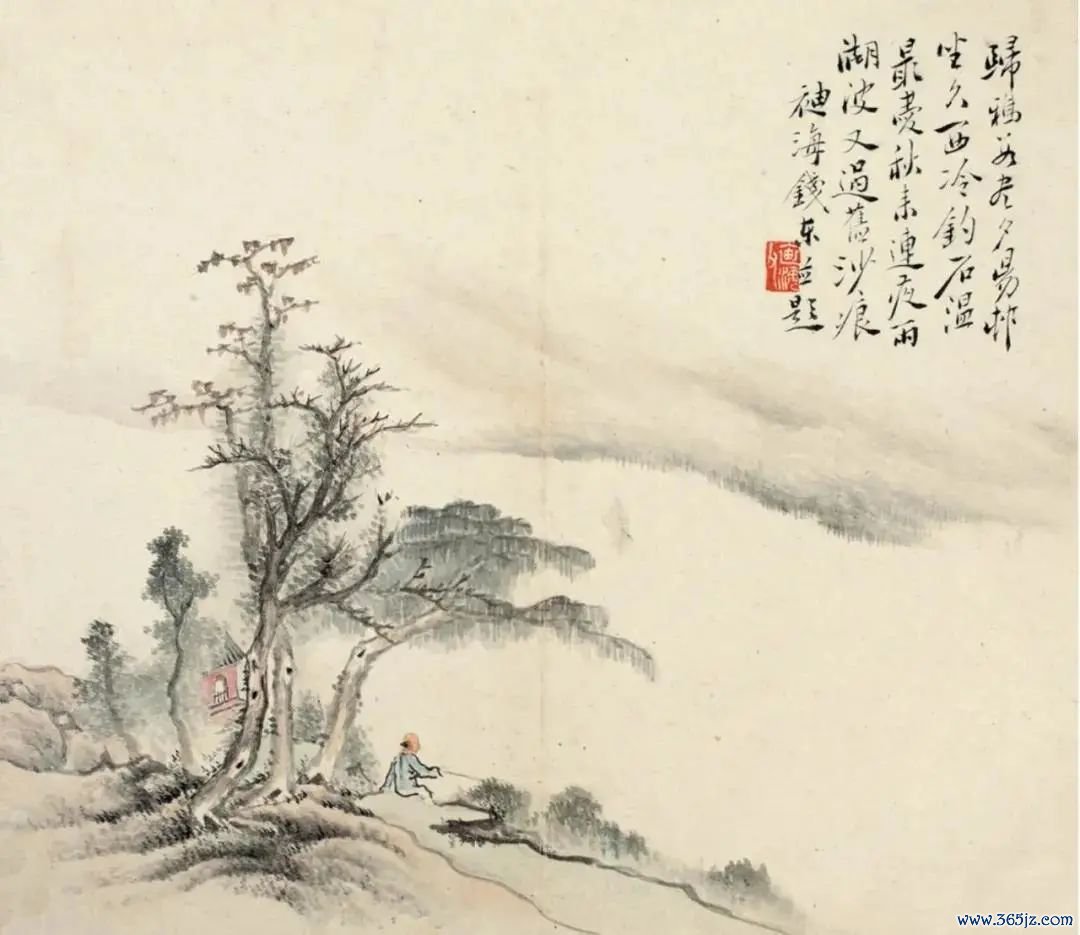 歸鴉尽夕昜邨
坐久西冷釣石温
最愛秋来連夜雨
湖波又過舊沙痕
袖海錢东並題
www.365jz.com